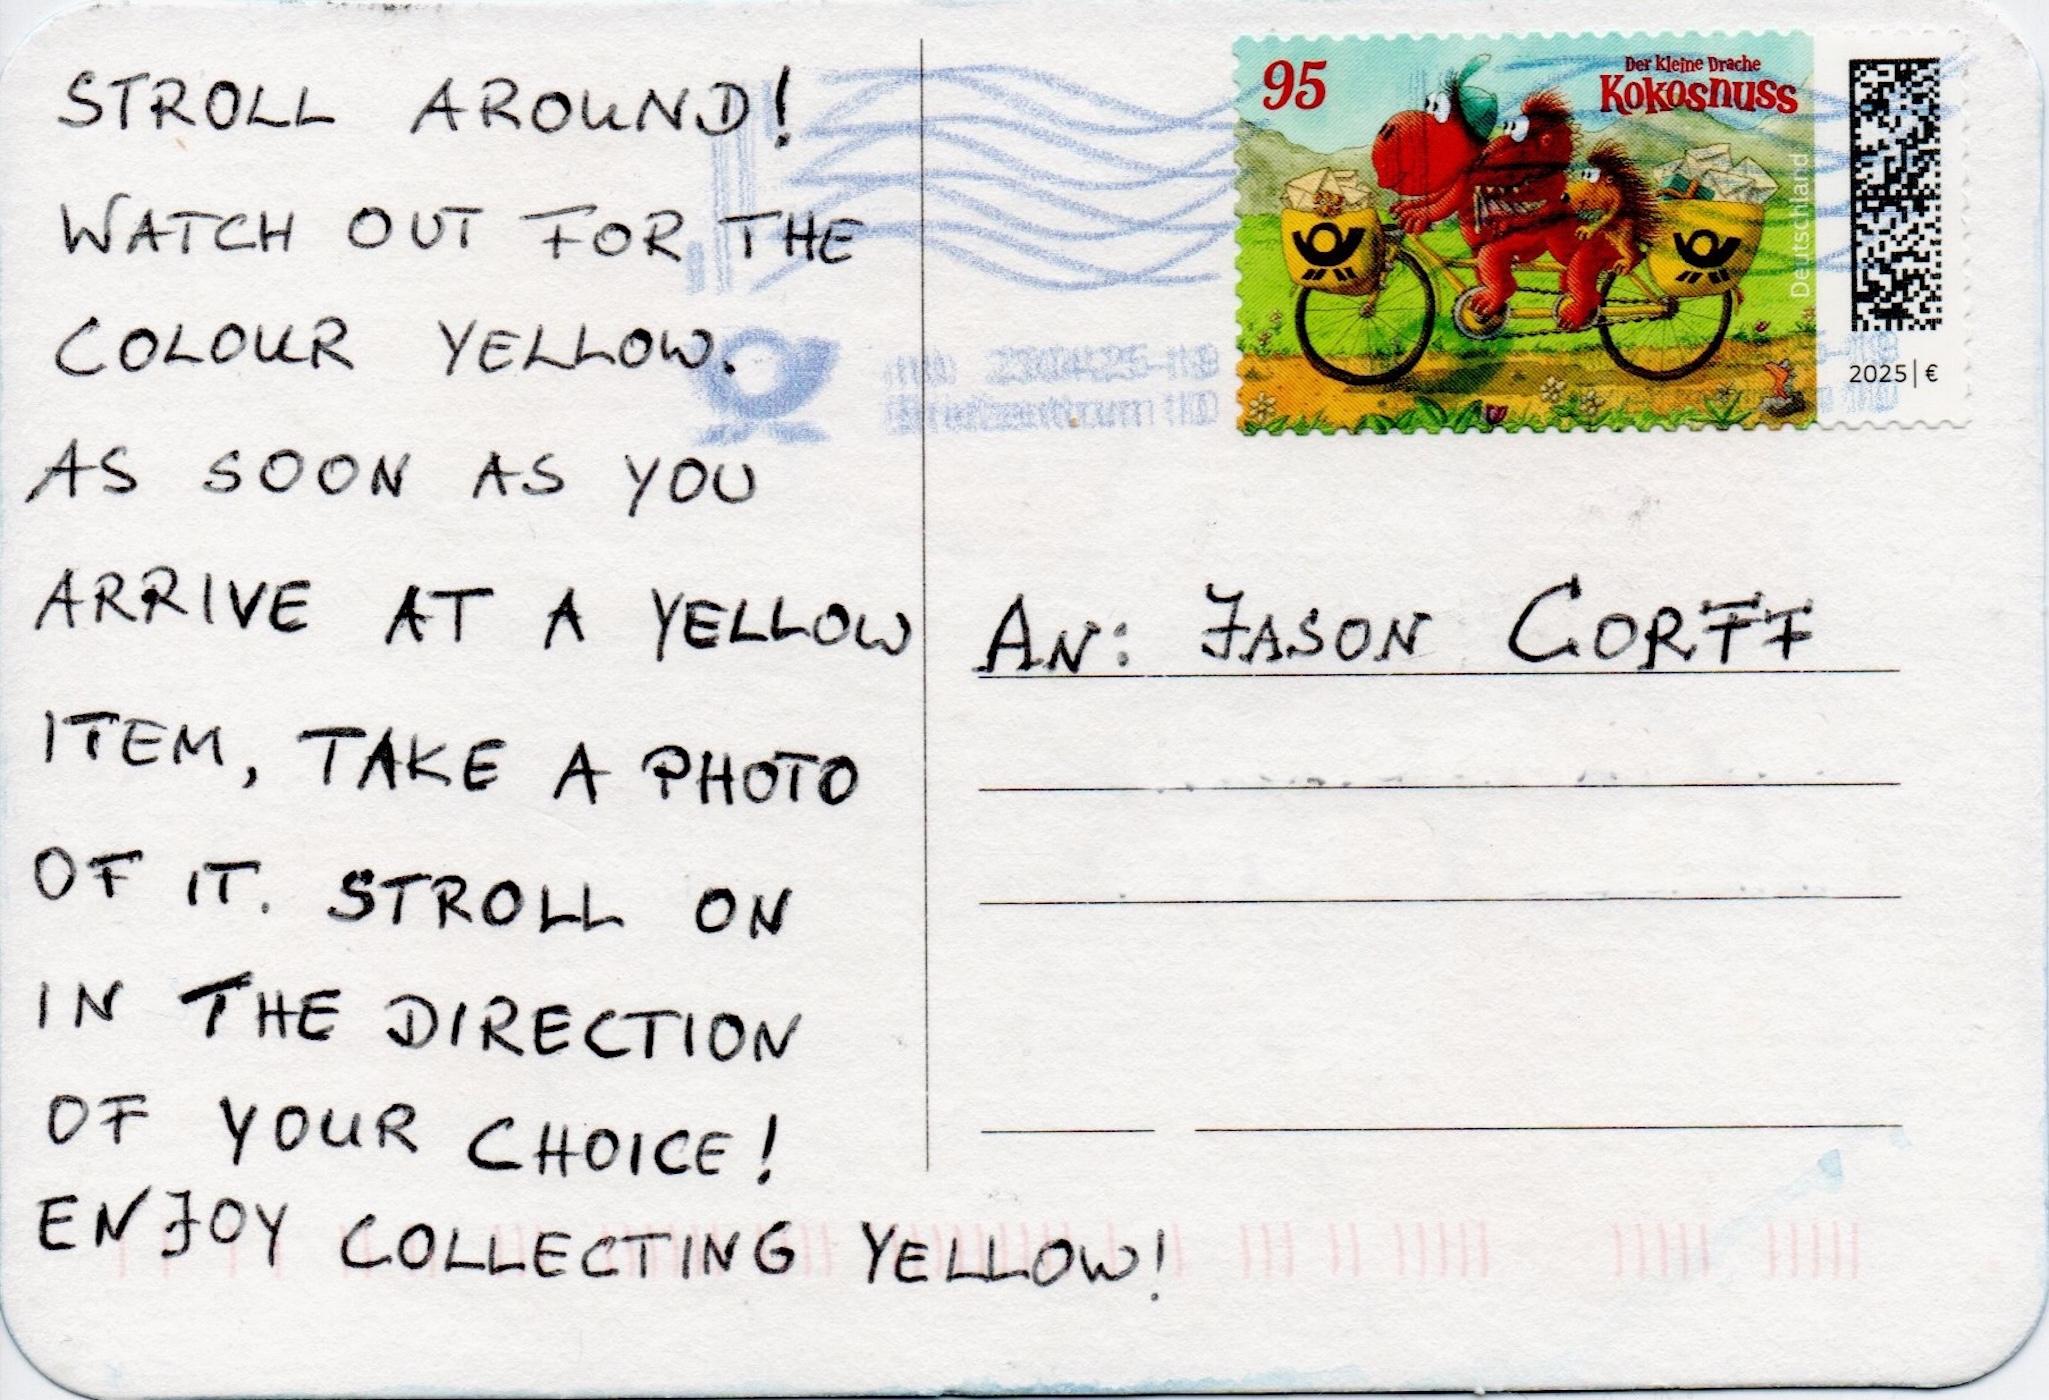 STROLL AROUND!
WATCH OUT FOR THE
COLOUR YELLOW.
AS SOON AS YOU
ARRIVE AT A YELLOW
ITEM, TAKE A PHOTO
OF IT. STROLL ON
IN THE DIRECTION
OF YOUR CHOICE!
ENJOY COLLECTING YELLOW!
95
Der kleine Drache
Kokosnuss
Deutschland
2025 | €
AN: JASON CORFF